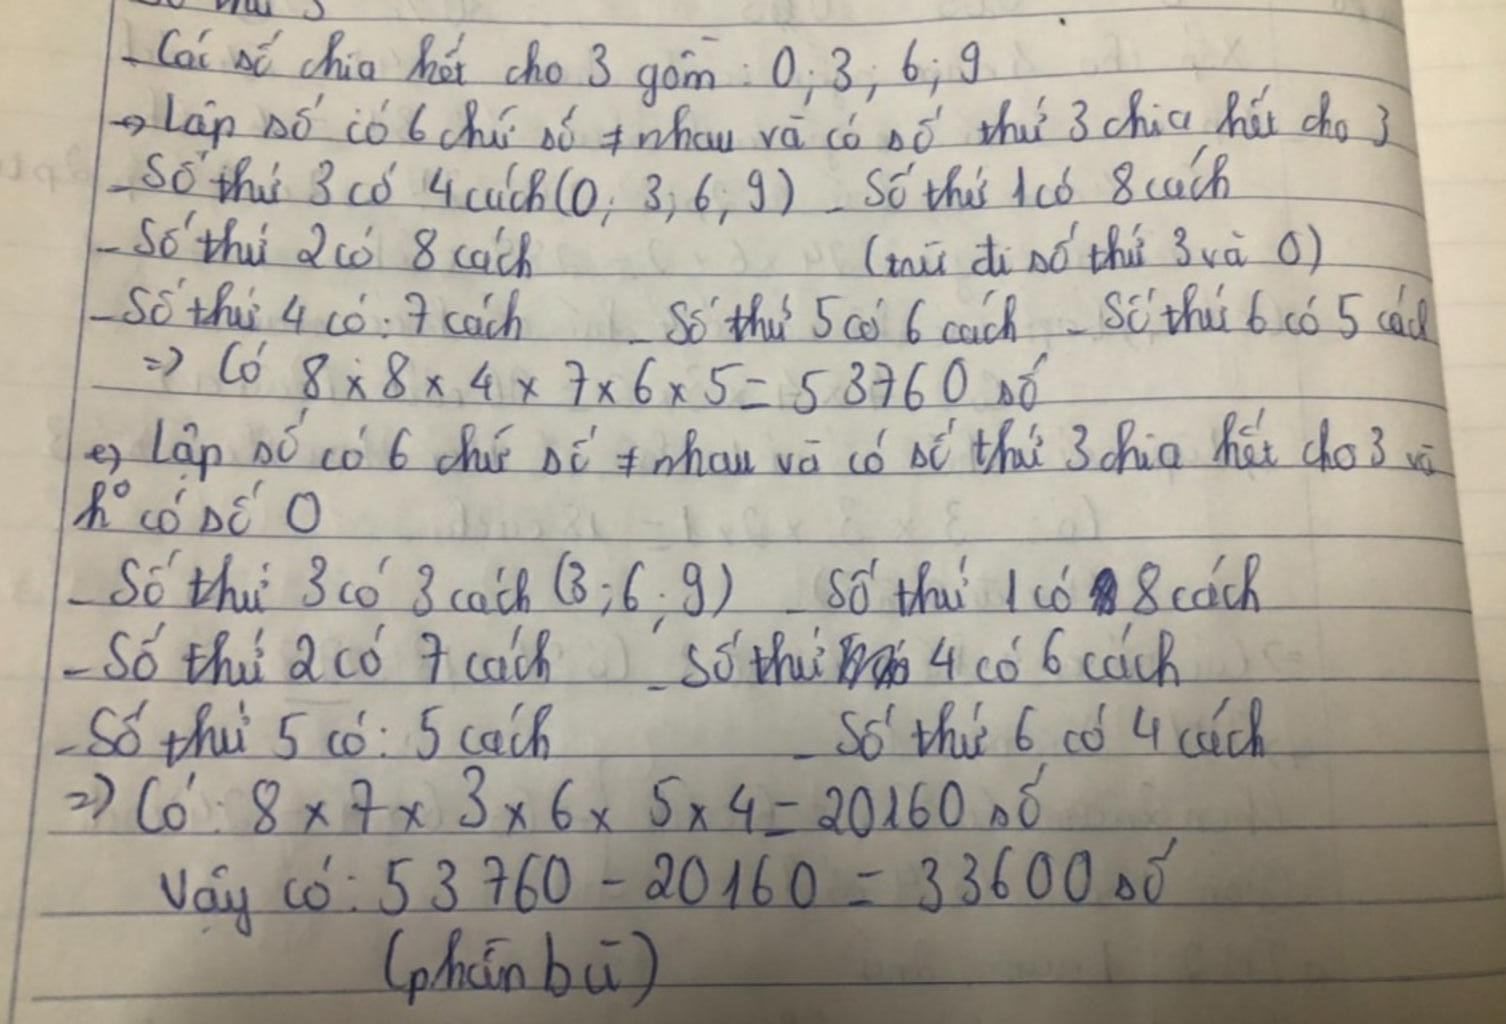 - Các số chia hết cho 3 gồm : 0; 3; 6; 9
→ Lập số có 6 chữ số ≠ nhau và có số thứ 3 chia hết cho 3
- Số thứ 3 có 4 cách (0; 3; 6; 9) - Số thứ 1 có 8 cách
- Số thứ 2 có 8 cách (trừ đi số thứ 3 và 0)
- Số thứ 4 có : 7 cách - Số thứ 5 có 6 cách - Số thứ 6 có 5 cách
=> Có 8 x 8 x 4 x 7 x 6 x 5 = 53760 số
→ Lập số có 6 chữ số ≠ nhau và có số thứ 3 chia hết cho 3 và
k° có số 0
- Số thứ 3 có 3 cách (3; 6; 9) - Số thứ 1 có 8 cách
- Số thứ 2 có 7 cách - Số thứ 4 có 6 cách
- Số thứ 5 có : 5 cách - Số thứ 6 có 4 cách
=> Có : 8 x 7 x 3 x 6 x 5 x 4 = 20160 số
Vậy có : 53760 - 20160 = 33600 số
(phần bù)